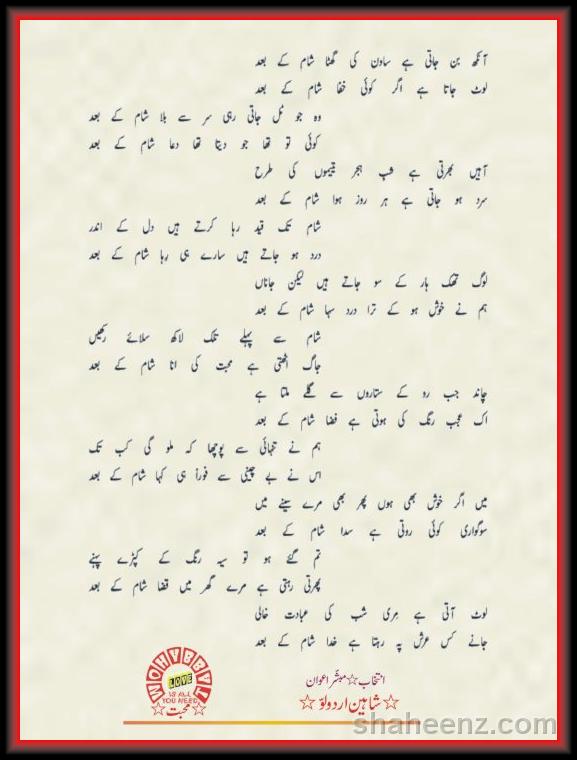 آنکھ بن جاتی ہے ساون کی گھٹا شام کے بعد
لوٹ جاتا ہے اگر کوئی خفا شام کے بعد
وہ جو ٹل جاتی رہی سر سے بلا شام کے بعد
کوئی تو تھا جو دیتا تھا دعا شام کے بعد
آہیں بھرتی ہے شبِ ہجر یتیموں کی طرح
سرد ہو جاتی ہے ہر روز ہوا شام کے بعد
شام تک قید رہا کرتے ہیں دل کے اندر
درد ہو جاتے ہیں سارے ہی رہا شام کے بعد
لوگ تھک ہار کے سو جاتے ہیں لیکن جاناں
ہم نے خوش ہو کے ترا درد سہا شام کے بعد
شام سے پہلے تلک لاکھ سلائے رکھیں
جاگ اٹھتی ہے محبت کی انا شام کے بعد
چاند جب رو کے ستاروں سے گلے ملتا ہے
اک عجب رنگ کی ہوتی ہے فضا شام کے بعد
ہم نے تنہائی سے پوچھا کہ ملو گی کب تک
اس نے بے چینی سے فوراً ہی کہا شام کے بعد
میں اگر خوش بھی ہوں پھر بھی مرے سینے میں
سوگواری کوئی روتی ہے سدا شام کے بعد
تم گئے ہو تو سیہ رنگ کے کپڑے پہنے
پھرتی رہتی ہے مرے گھر میں قضا شام کے بعد
لوٹ آتی ہے مِری شب کی عبادت خالی
جانے کس عرش پہ رہتا ہے خدا شام کے بعد
انتخاب☆مبشّر اعوان
☆شاہین اردولوّ☆
MOHABBAT
LOVE
IS ALL
YOU NEED
☆محبت☆
shaheenz.com